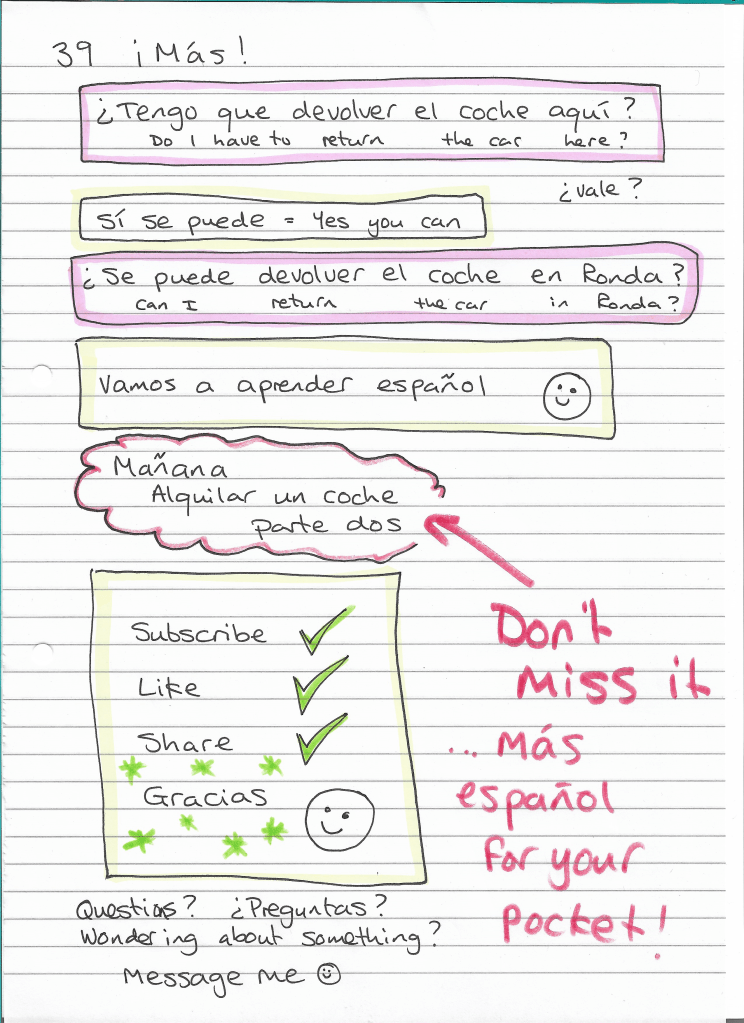 39 ¡Más!
¿Tengo que devolver el coche aquí?
Do I have to return the car here?
¿vale?
Sí se puede = Yes you can
¿Se puede devolver el coche en Ronda?
can I return the car in Ronda?
Vamos a aprender español
Mañana
Alquilar un coche
parte dos
Don't
miss it
... más
español
for your
pocket!
Subscribe
Like
Share
Gracias
Questions? ¿Preguntas?
Wondering about something?
Message me